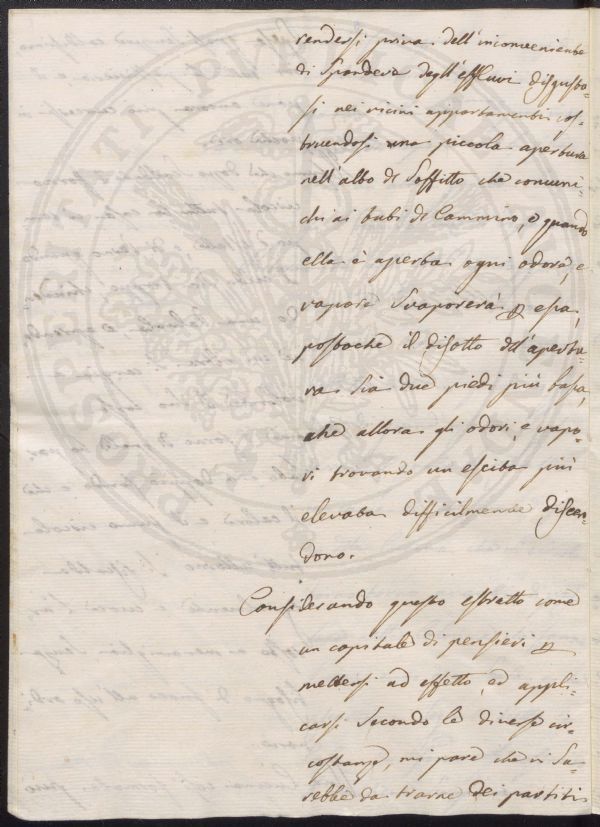 rendersi priva dell'inconveniente
di Spandere degl'effluvi disgusto-
si nei vicini appartamenti cos-
truendosi una piccola apertura
nell'alto di Soffitto che comuni-
chi ai tubi di Cammino, e quando
ella è aperta ogni odore, e
vapore Svaporerà p essa,
postoche il disotto dell'apertu-
ra Sia due piedi più bassa,
che allora gli odori, e vapo-
ri trovando un escita più
elevata difficilmente discen-
dono.
Considerando questo estratto come
un capitale di pensieri p
mettersi ad effetto, ed appli-
carsi Secondo le diverse cir-
costanze, mi pare che vi Sa-
rebbe da trarne dei partiti
PROSPERITATI PVBLICAE